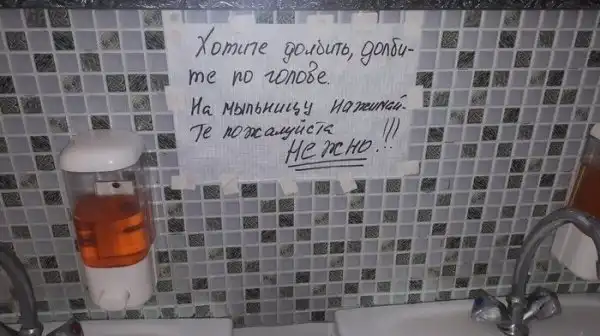 Хотите долбить, долби-
те по голове.
На мыльницу нажимай-
те пожалуйста
НЕЖНО..!!!